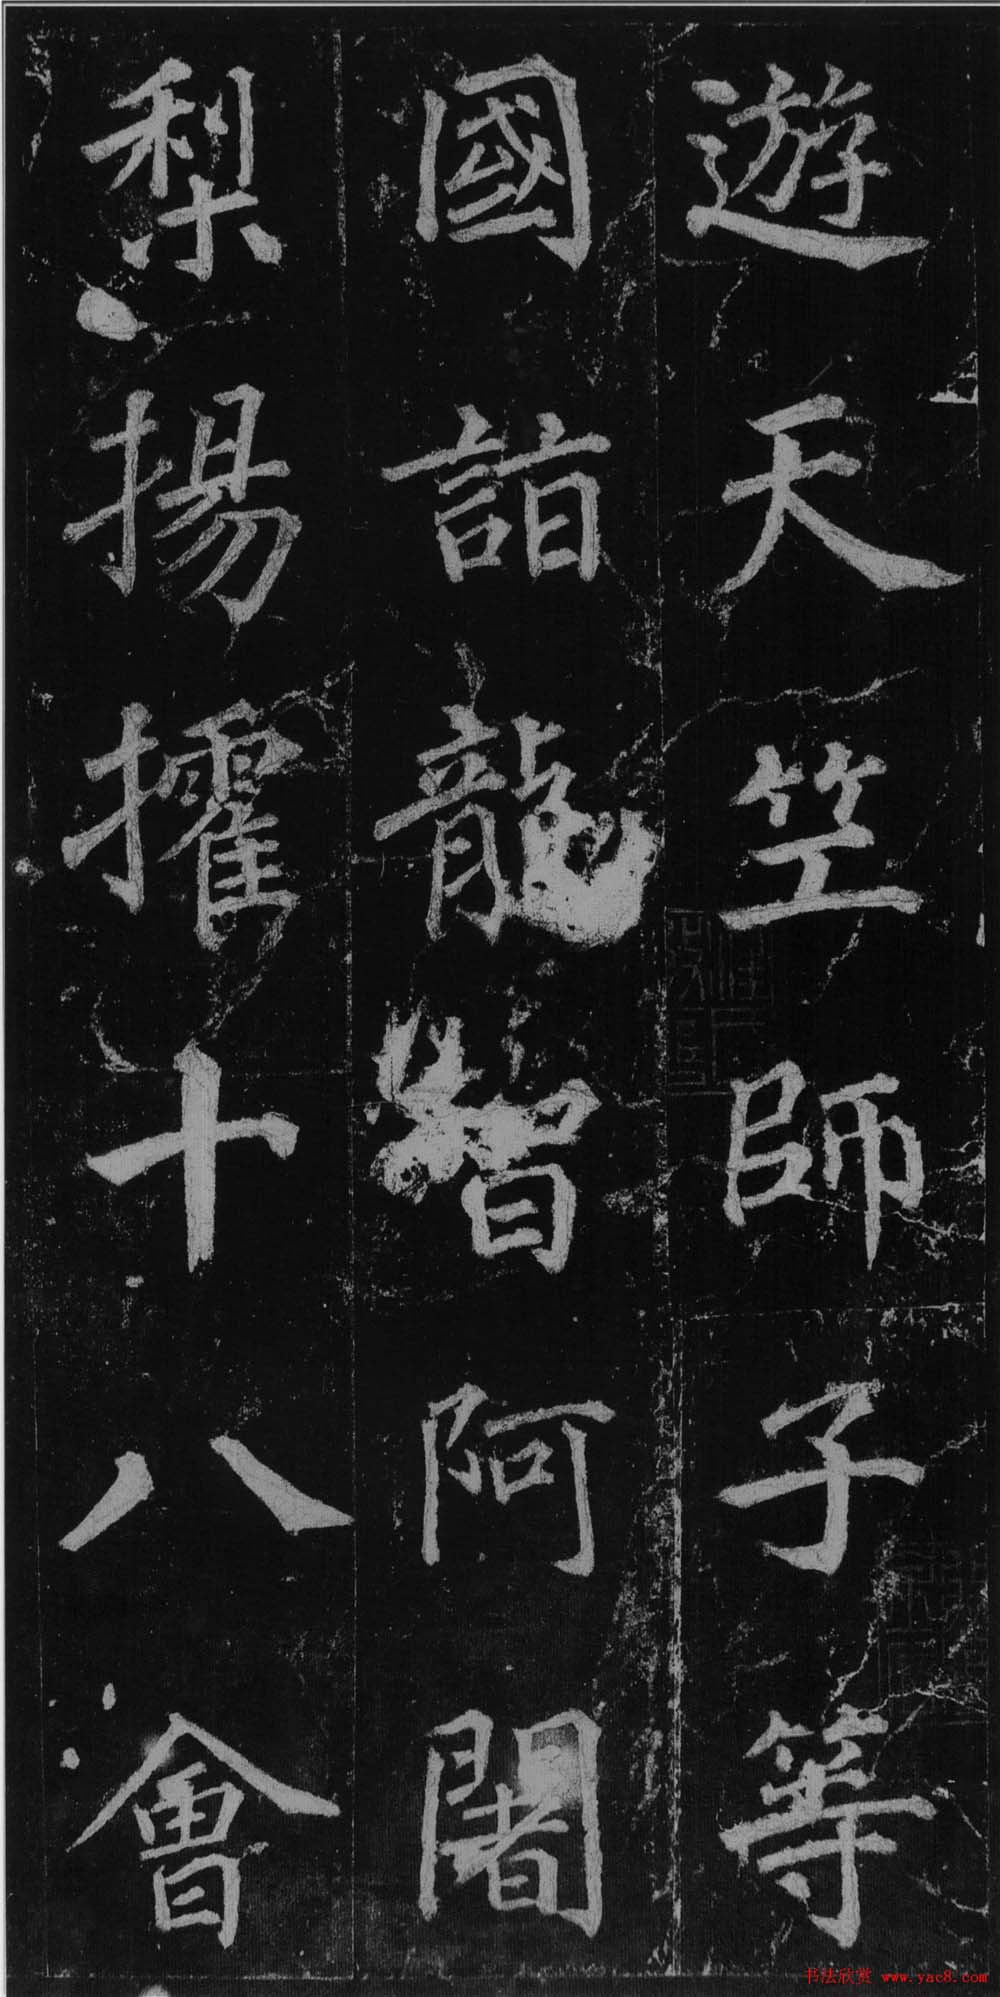 遊天竺師子等
國詣龍智阿闍
梨揚搉十八會
书法欣赏 www.yac8.com